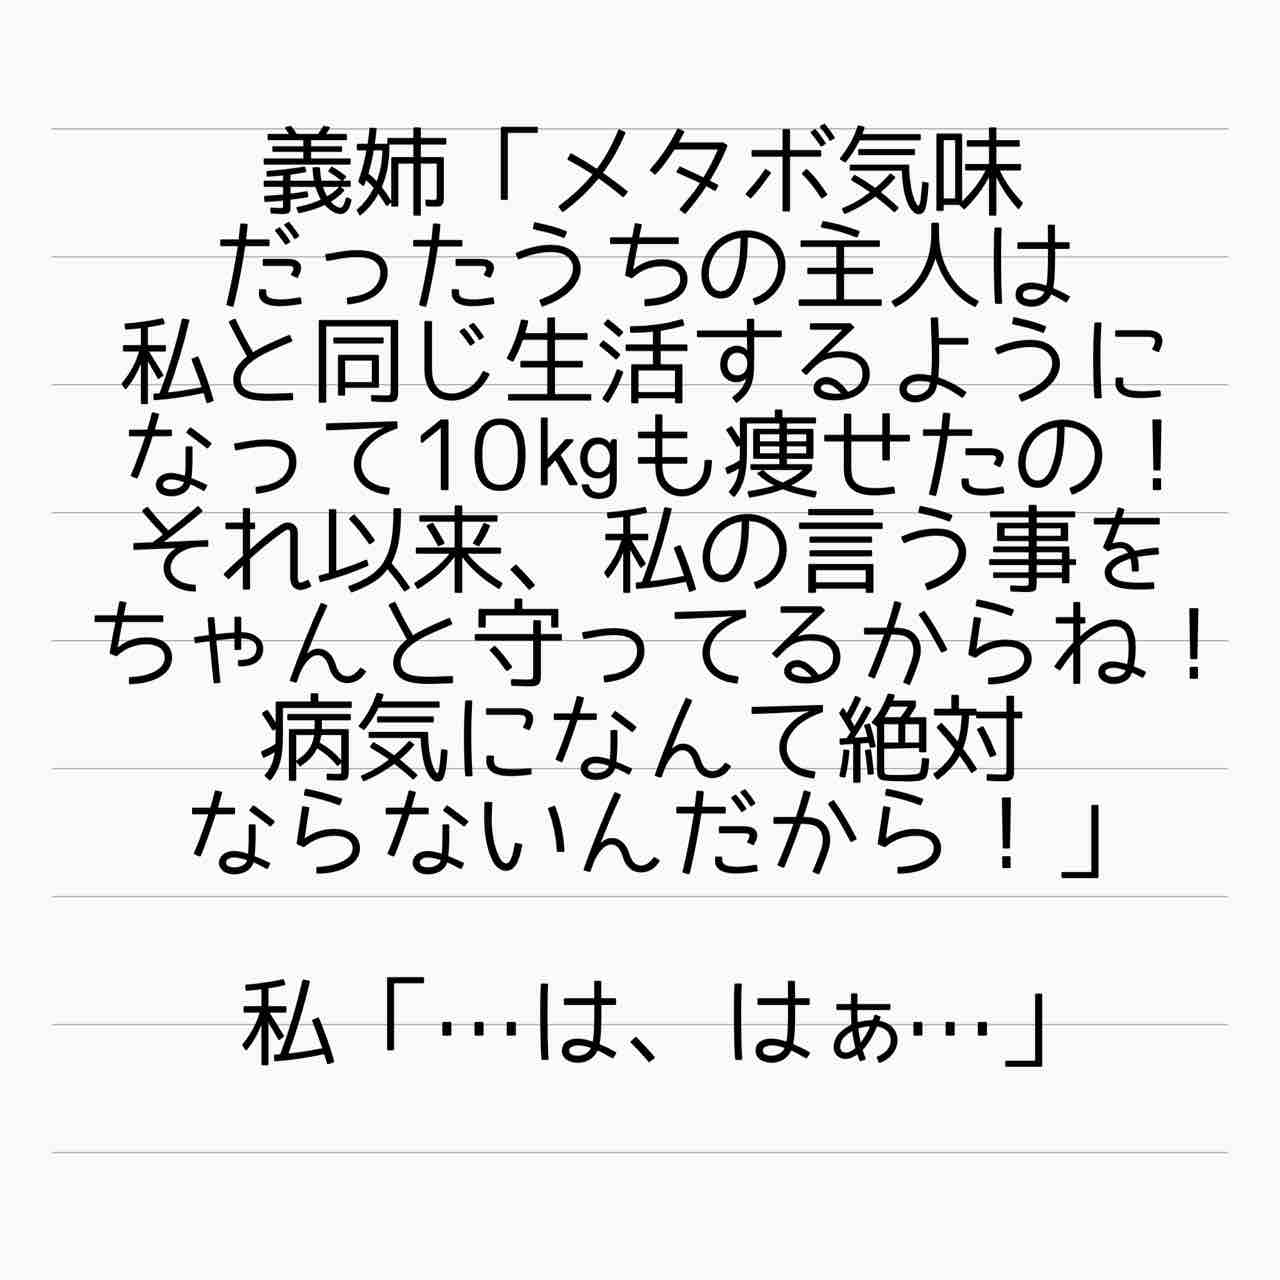 義姉「メタボ気味
だったうちの主人は
私と同じ生活するように
なって10kgも痩せたの！
それ以来、私の言う事を
ちゃんと守ってるからね！
病気になんて絶対
ならないんだから！」
私「…は、はぁ…」